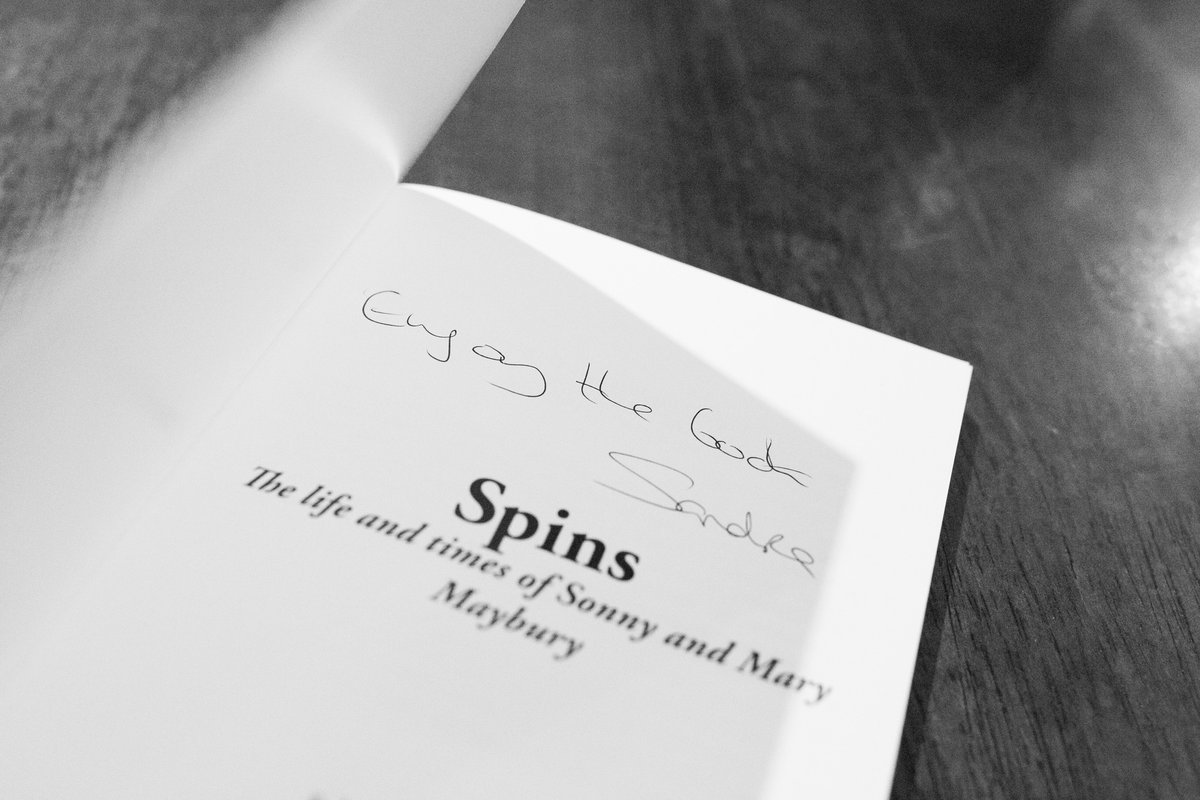 Enjoy the book
Sandra
Spins
The life and times of Sonny and Mary
Maybury